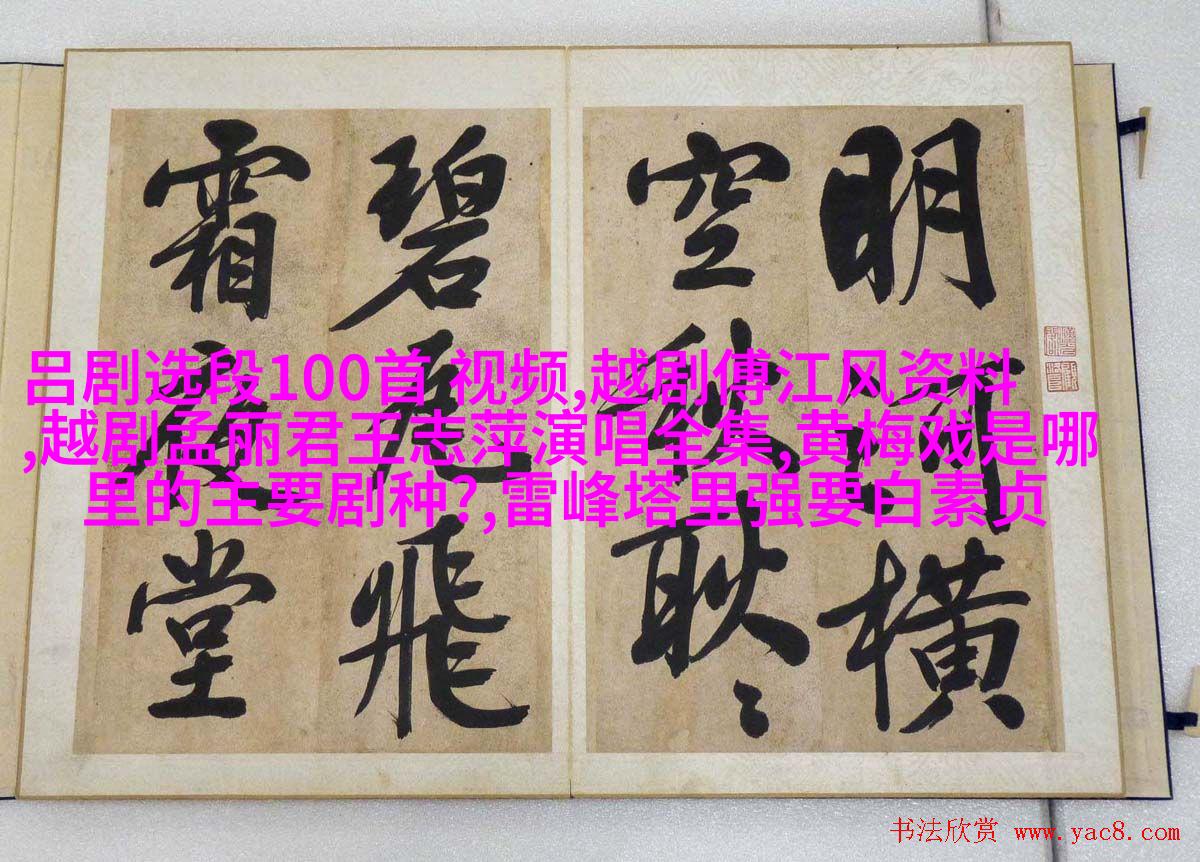 明河横
空秋耿〻
碧瓦飛
霜夜堂
吕剧选段100首 视频,越剧傅江风资料
,越剧孟丽君王志萍演唱全集,黄梅戏是哪
里的主要剧种?,雷峰塔里强要白素贞
书法欣赏 www.yac8.com